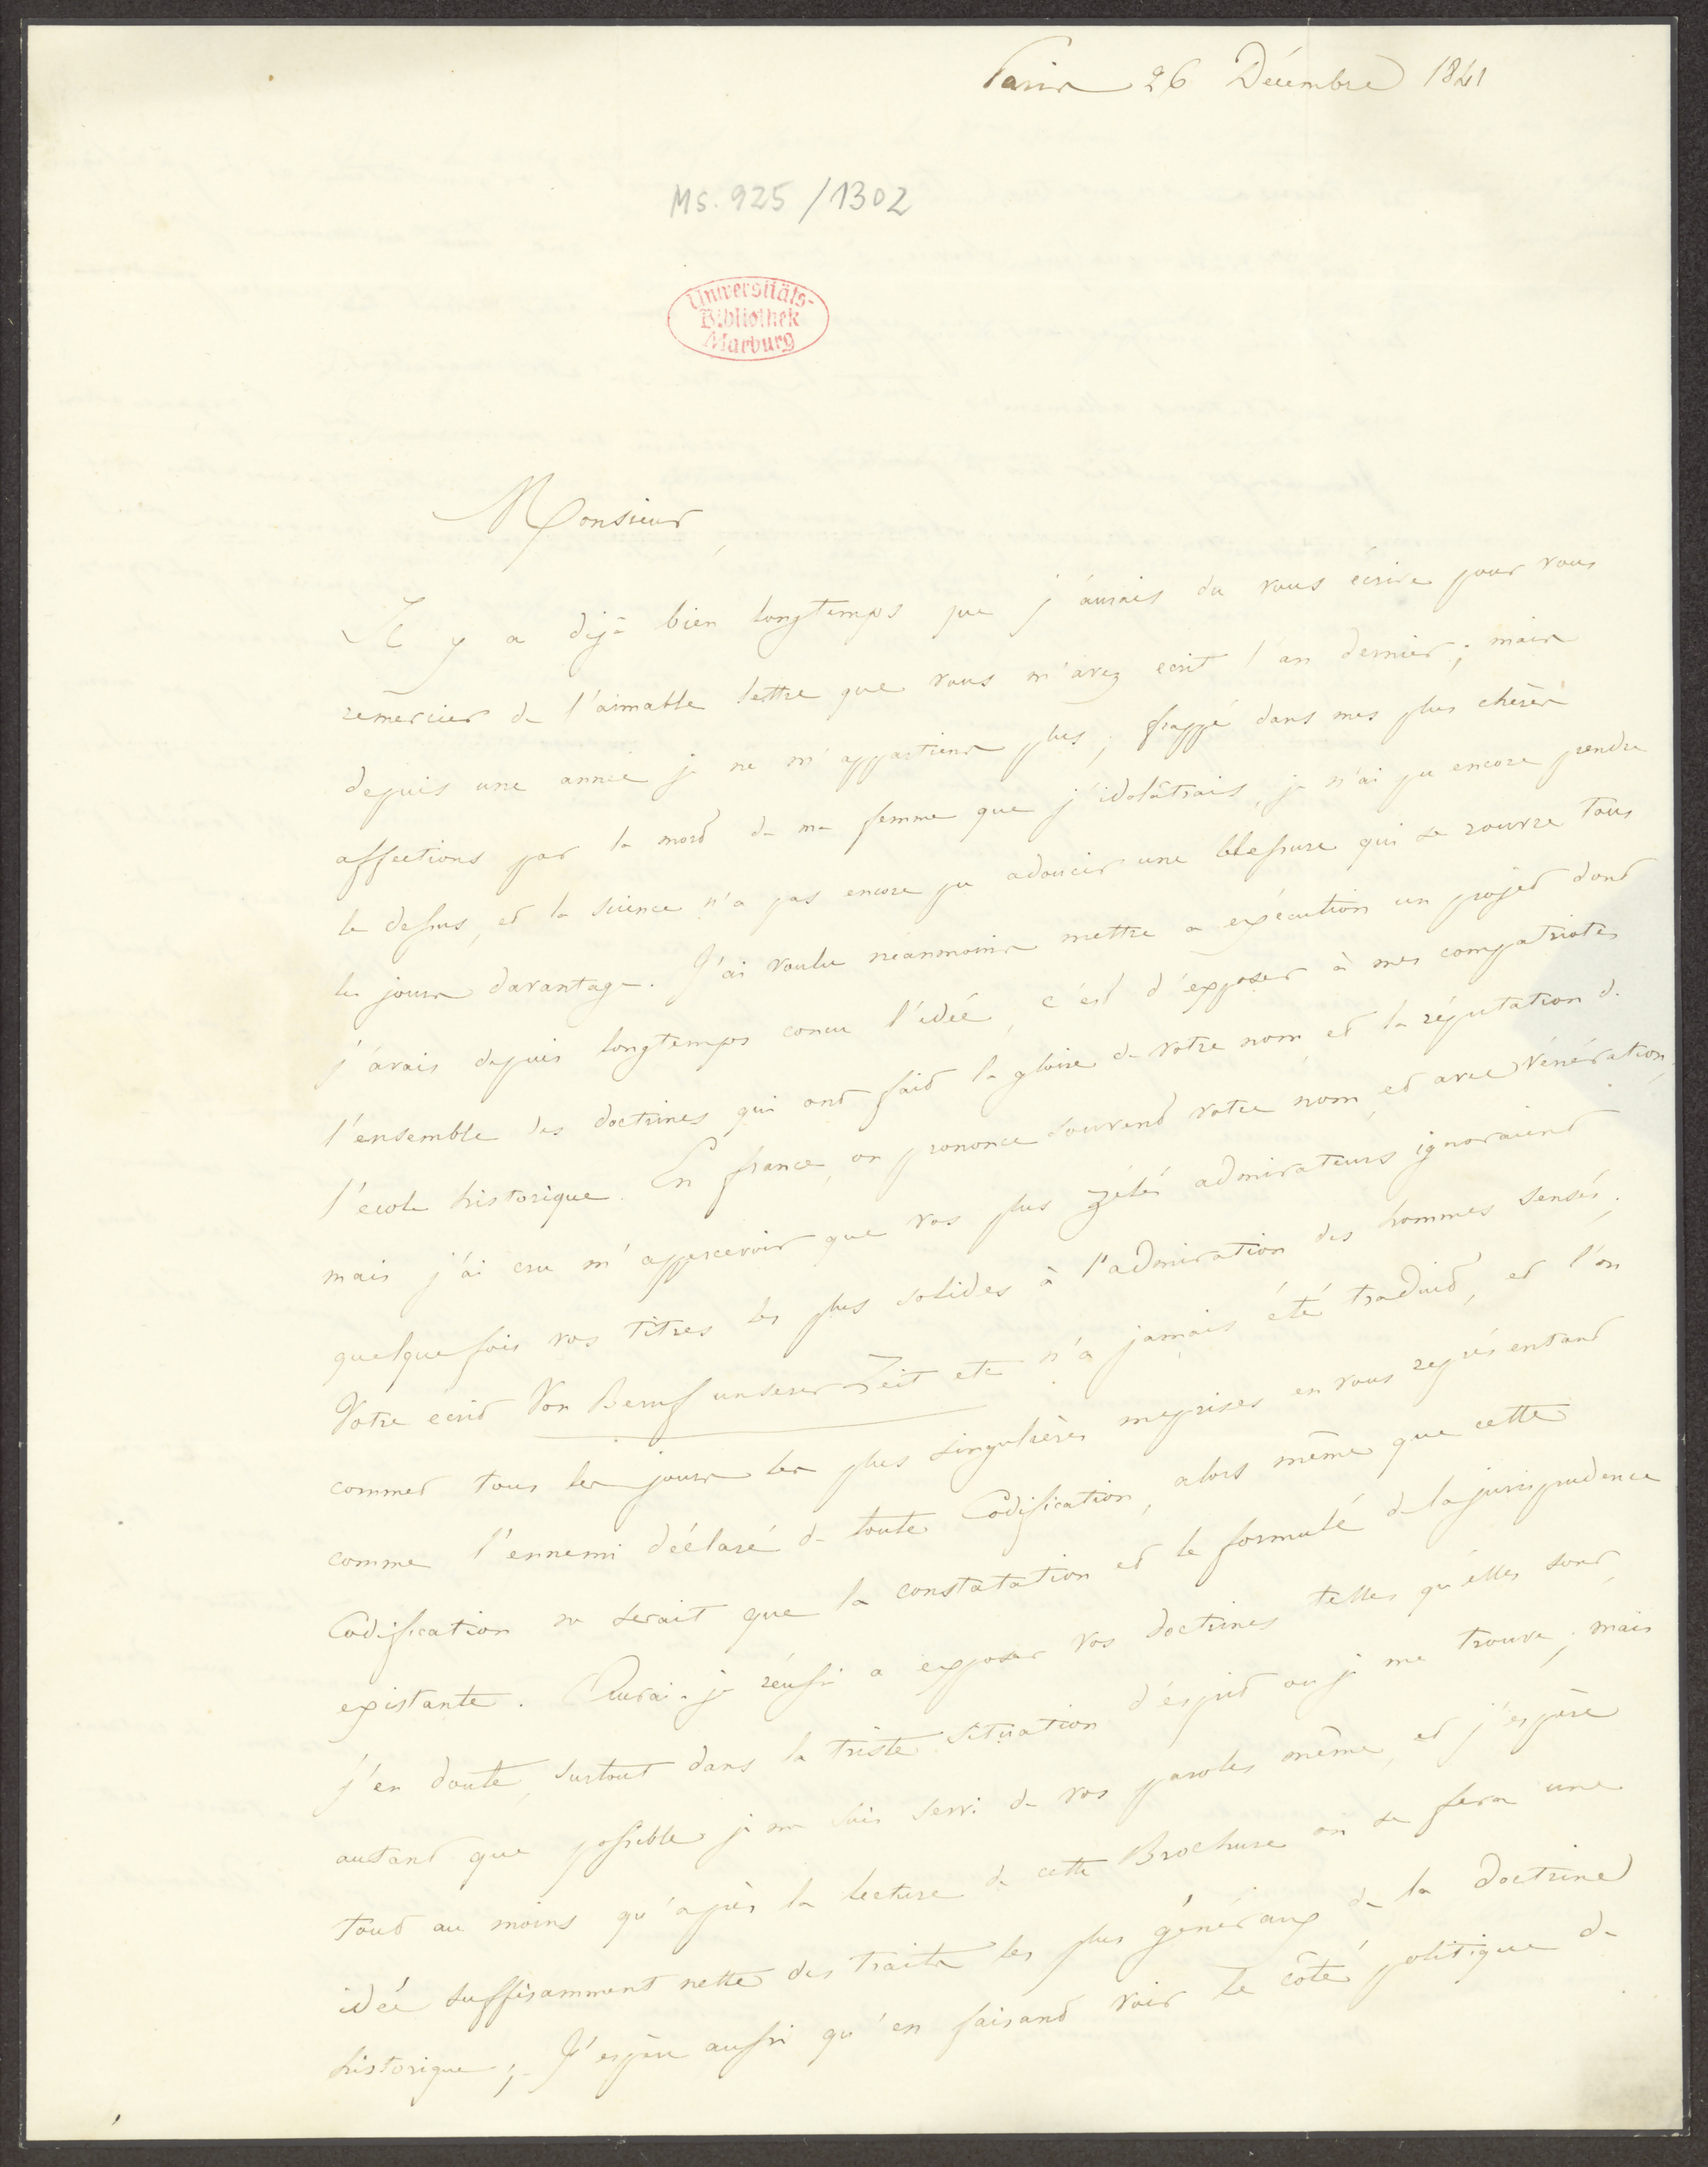 Paris 26 Décembre 1841
Ms. 925/1302
Universitäts-
Bibliothek
Marburg
Monsieur
Il y a déjà bien longtemps que j'aurais du vous écrire pour vous
remercier de l'aimable lettre que vous m'avez écrit l'an dernier; mais
depuis une année je ne m'appartiens plus; frappé dans mes plus chères
affections par la mort de ma femme que j'idolâtrais, je n'ai pu encore prendre
le dessus, et la science n'a pas encore pu adoucir une blessure qui se rouvre tous
les jours davantage. J'ai voulu néanmoins mettre a exécution un projet dont
j'avais depuis longtemps concu l'idée, c'est d'exposer à mes compatriotes
l'ensemble des doctrines qui ont fait la gloire de votre nom et la réputation de
l'ecole historique. En france, on prononce souvent votre nom et avec vénération,
mais j'ai cru m'appercevoir que vos plus zélés admirateurs ignoraient
quelquefois vos titres les plus solides à l'admiration des hommes sensés.
Votre écrit Von Beruf unserer Zeit etc n'a jamais été traduit, et l'on
commet tous les jours les plus singulières meprises en vous représentant
comme l'ennemi déclaré de toute Codification, alors même que cette
Codification ne serait que la constatation et le formulé de la jurisprudence
existante. Aurai-je réussi a exposer vos doctrines telles qu'elles sont,
j'en doute, surtout dans la triste situation d'esprit ou je me trouve; mais
autant que possible je me suis servi de vos paroles même, et j'espère
tout au moins qu'après la lecture de cette Brochure on se fera une
idée suffisamment nette des traits les plus généraux de la doctrine
historique; J'espère aussi qu'en faisant voir le côté politique de